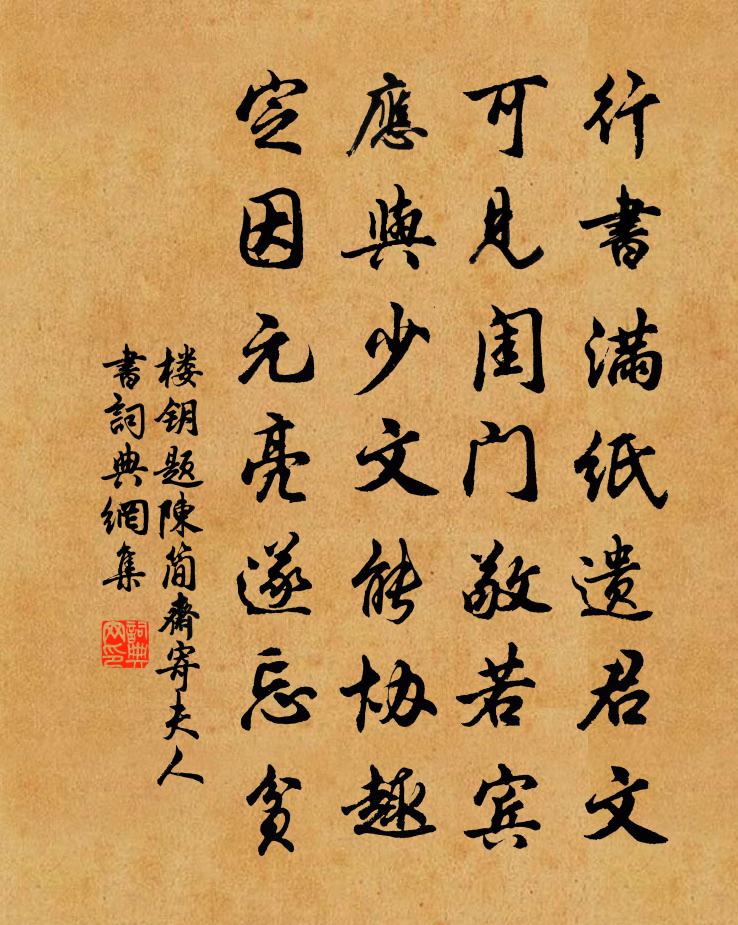 行書滿紙遗君文
可見闺门敬若宾
應與少文能协趣
定因元亮遂忘貧
楼钥题陳简齋寄夫人
書詞典網集
詞典
网印